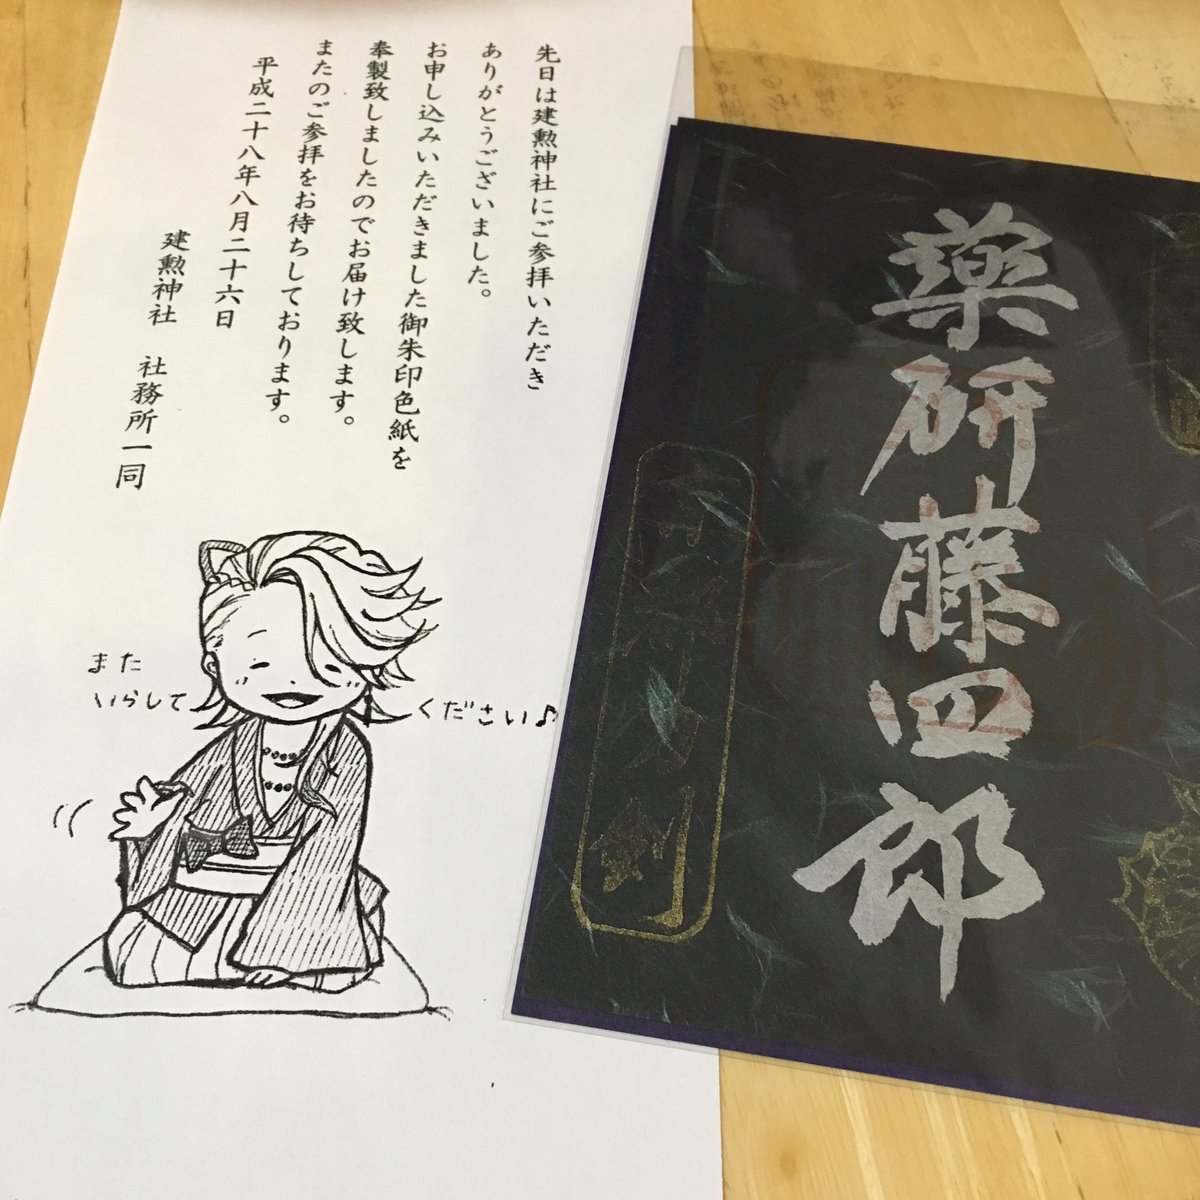 先日は建勲神社にご参拝いただき
ありがとうございました。
お申し込みいただきました御朱印色紙を
奉製致しましたのでお届け致します。
またのご参拝をお待ちしております。
平成二十八年八月二十六日
建勲神社　社務所一同
また
いらして
ください♪
薬研藤四郎